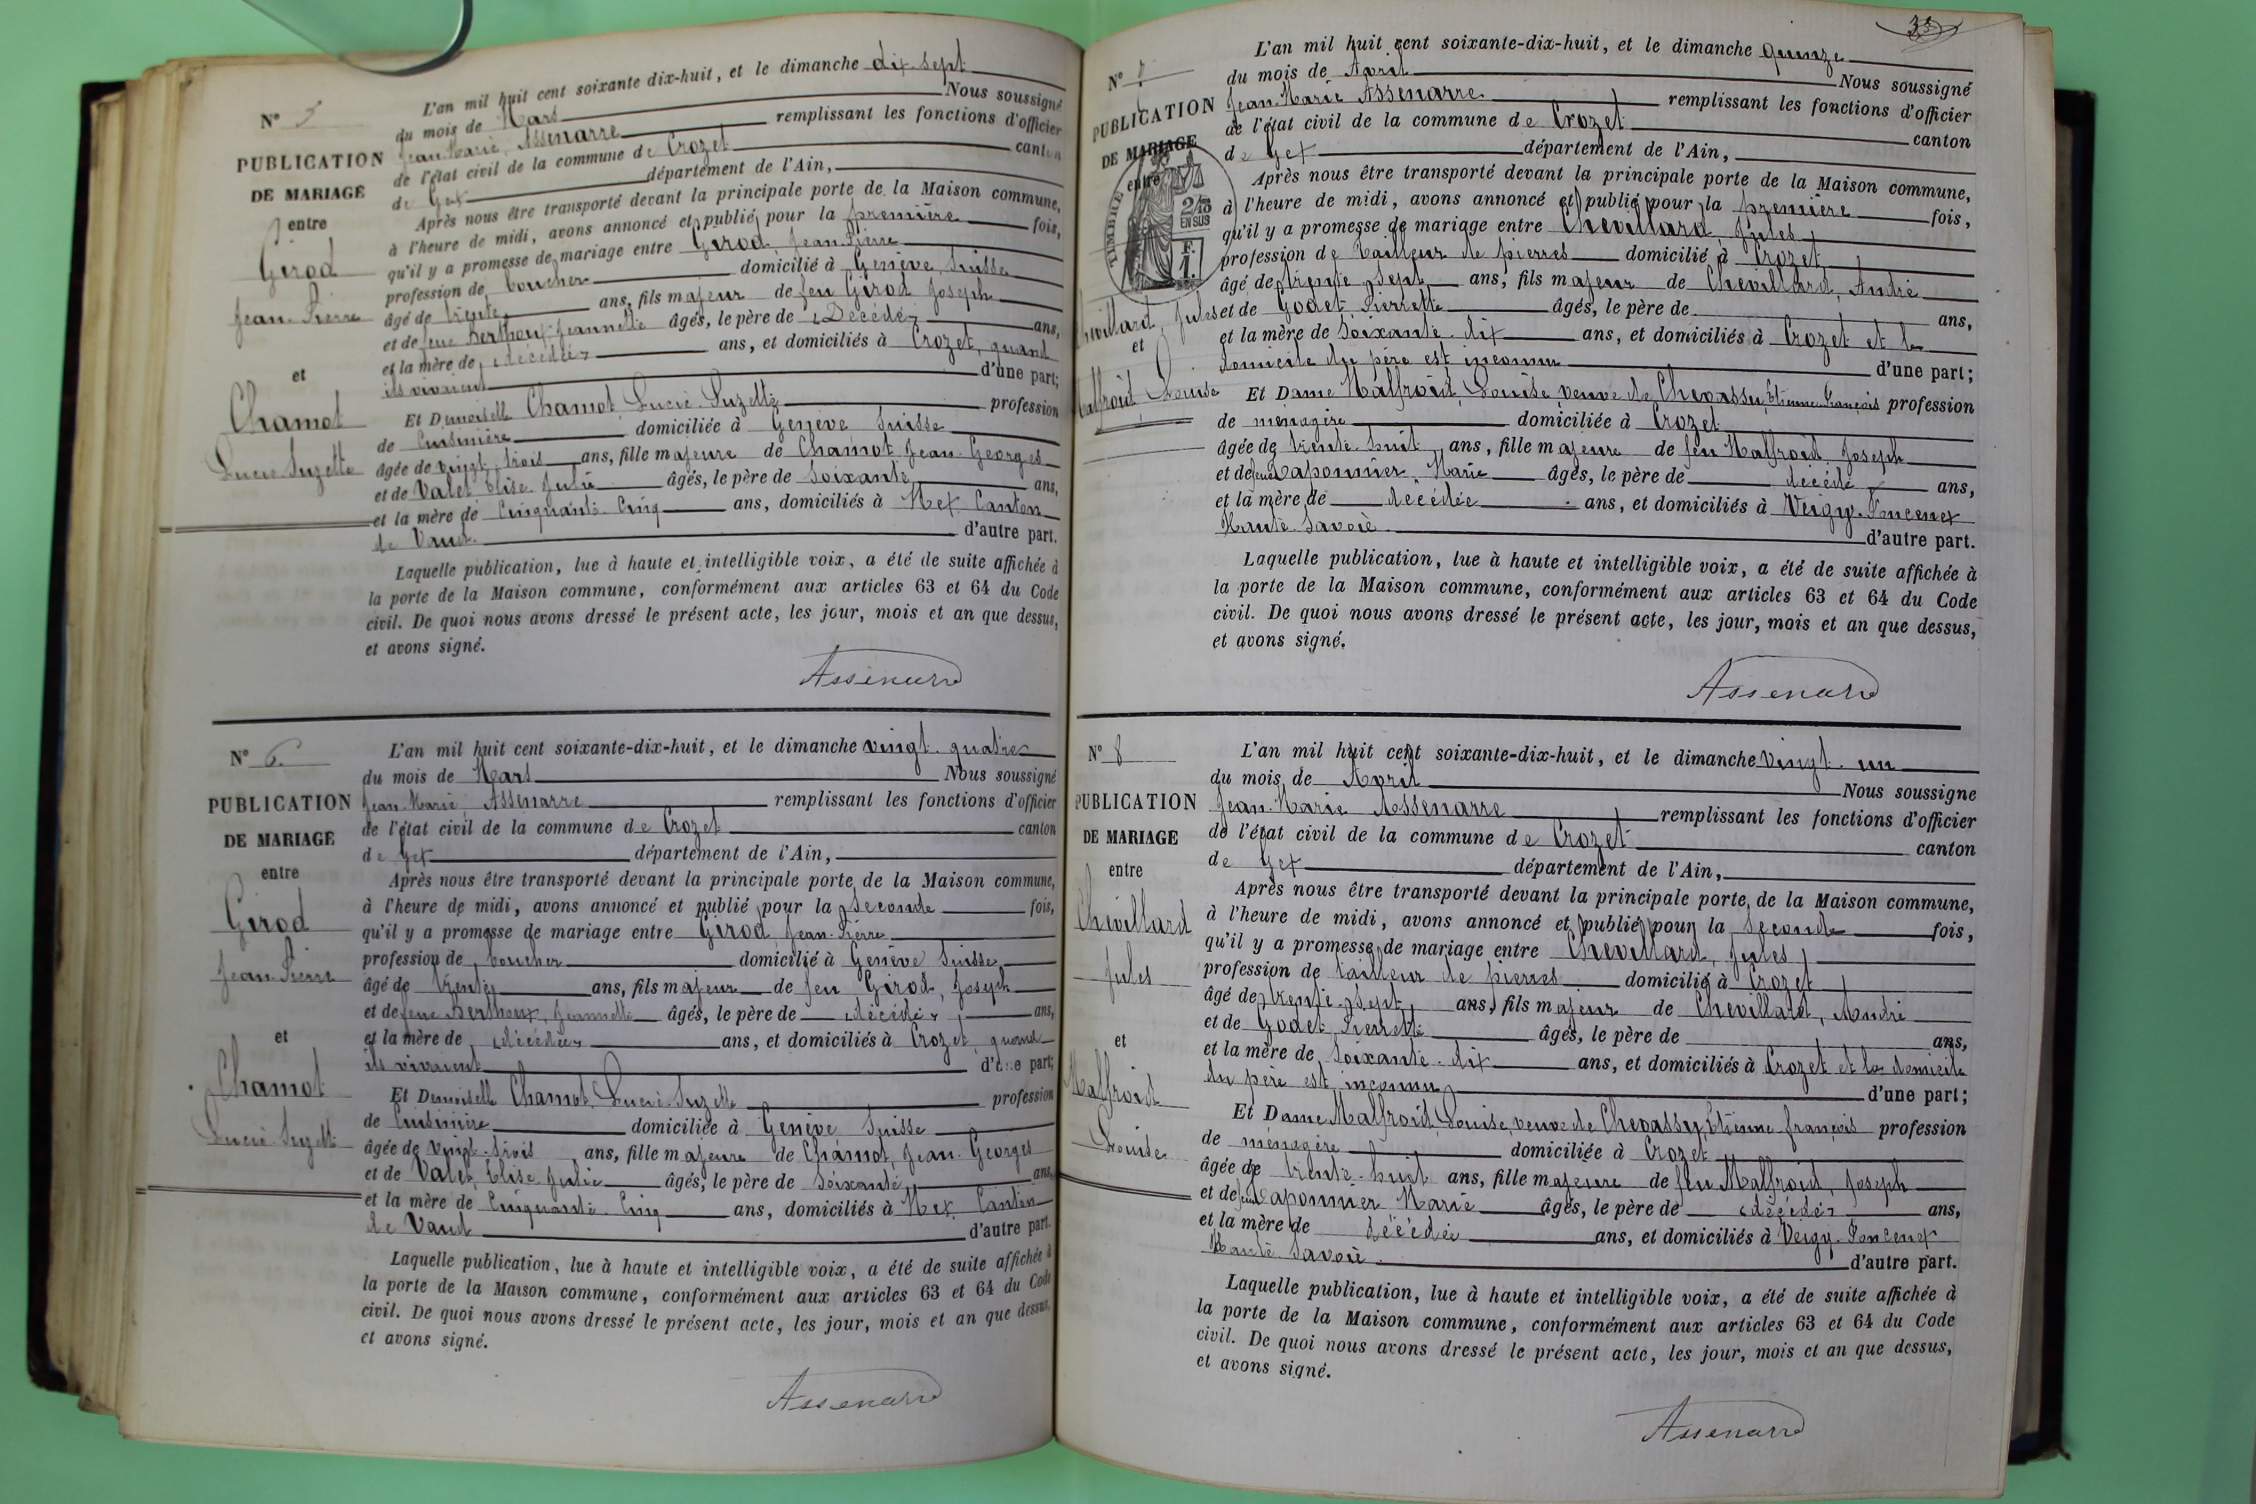 N° 5
PUBLICATION
DE MARIAGE
entre
Girod
Jean-Pierre
et
Chamot
Lucie Suzette
L'an mil huit cent soixante dix-huit, et le dimanche dix sept
du mois de Mars Nous soussigné
Jean-Marie Assenarre remplissant les fonctions d'officier
de l'état civil de la commune de Crozet canton
de Gex département de l'Ain,
Après nous être transporté devant la principale porte de la Maison commune,
à l'heure de midi, avons annoncé et publié pour la première fois,
qu'il y a promesse de mariage entre Girod Jean-Pierre
profession de boucher domicilié à Genève Suisse
âgé de trente ans, fils majeur de feu Girod Joseph
et de feue Berthoux Jeannette âgés, le père de Décédé ans,
et la mère de décédée ans, et domiciliés à Crozet, quand
ils vivaient d'une part;
Et Demoiselle Chamot Lucie Suzette profession
de Cuisinière domiciliée à Genève Suisse
âgée de vingt-trois ans, fille majeure de Chamot Jean-Georges
et de Valet Elise Julie âgés, le père de Soixante ans,
et la mère de Cinquante-Cinq ans, domiciliés à Mex Canton
de Vaud d'autre part.
Laquelle publication, lue à haute et intelligible voix, a été de suite affichée à
la porte de la Maison commune, conformément aux articles 63 et 64 du Code
civil. De quoi nous avons dressé le présent acte, les jour, mois et an que dessus,
et avons signé.
Assenarre
N° 6
PUBLICATION
DE MARIAGE
entre
Girod
Jean-Pierre
et
Chamot
Lucie Suzette
L'an mil huit cent soixante-dix-huit, et le dimanche vingt-quatre
du mois de Mars Nous soussigné
Jean-Marie Assenarre remplissant les fonctions d'officier
de l'état civil de la commune de Crozet canton
de Gex département de l'Ain,
Après nous être transporté devant la principale porte de la Maison commune,
à l'heure de midi, avons annoncé et publié pour la Seconde fois,
qu'il y a promesse de mariage entre Girod Jean-Pierre
profession de boucher domicilié à Genève Suisse
âgé de trente ans, fils majeur de feu Girod, Joseph
et de feue Berthoux Jeannette âgés, le père de décédé ans,
et la mère de décédée ans, et domiciliés à Crozet quand
ils vivaient d'une part;
Et Demoiselle Chamot Lucie Suzette profession
de Cuisinière domiciliée à Genève Suisse
âgée de vingt-trois ans, fille majeure de Chamot, Jean-Georges
et de Valet, Elise Julie âgés, le père de Soixante ans,
et la mère de Cinquante-Cinq ans, domiciliés à Mex Canton
de Vaud d'autre part.
Laquelle publication, lue à haute et intelligible voix, a été de suite affichée à
la porte de la Maison commune, conformément aux articles 63 et 64 du Code
civil. De quoi nous avons dressé le présent acte, les jour, mois et an que dessus,
et avons signé.
Assenarre
33
N° 7
PUBLICATION
DE MARIAGE
entre
TIMBRE
2/10
EN SUS
F.
1.
Chevillard, Jules
et
Malfroid, Louise
L'an mil huit cent soixante-dix-huit, et le dimanche quinze
du mois de Avril Nous soussigné
Jean-Marie Assenarre remplissant les fonctions d'officier
de l'état civil de la commune de Crozet canton
de Gex département de l'Ain,
Après nous être transporté devant la principale porte de la Maison commune,
à l'heure de midi, avons annoncé et publié pour la première fois,
qu'il y a promesse de mariage entre Chevillard, Jules
profession de tailleur de pierres domicilié à Crozet
âgé de trente-sept ans, fils majeur de Chevillard, André
et de Godet Pierrette âgés, le père de ans,
et la mère de Soixante-dix ans, et domiciliés à Crozet et le
domicile du père est inconnu d'une part;
Et Dame Malfroid, Louise, veuve de Chevassu, Etienne François profession
de ménagère domiciliée à Crozet
âgée de trente-huit ans, fille majeure de feu Malfroid Joseph
et de feue Laponnier Marie âgés, le père de décédé ans,
et la mère de décédée ans, et domiciliés à Veigy-Foncenex
Haute-Savoie d'autre part.
Laquelle publication, lue à haute et intelligible voix, a été de suite affichée à
la porte de la Maison commune, conformément aux articles 63 et 64 du Code
civil. De quoi nous avons dressé le présent acte, les jour, mois et an que dessus,
et avons signé.
Assenarre
N° 8
PUBLICATION
DE MARIAGE
entre
Chevillard
Jules
et
Malfroid
Louise
L'an mil huit cent soixante-dix-huit, et le dimanche vingt-un
du mois de Avril Nous soussigné
Jean-Marie Assenarre remplissant les fonctions d'officier
de l'état civil de la commune de Crozet canton
de Gex département de l'Ain,
Après nous être transporté devant la principale porte de la Maison commune,
à l'heure de midi, avons annoncé et publié pour la Seconde fois,
qu'il y a promesse de mariage entre Chevillard, Jules
profession de tailleur de pierres domicilié à Crozet
âgé de trente-sept ans, fils majeur de Chevillard, André
et de Godet Pierrette âgés, le père de ans,
et la mère de Soixante-dix ans, et domiciliés à Crozet et le domicile
du père est inconnu d'une part;
Et Dame Malfroid, Louise, veuve de Chevassu, Etienne françois profession
de ménagère domiciliée à Crozet
âgée de trente-huit ans, fille majeure de feu Malfroid, Joseph
et de feue Laponnier Marie âgés, le père de décédé ans,
et la mère de décédée ans, et domiciliés à Veigy-Foncenex
Haute Savoie d'autre part.
Laquelle publication, lue à haute et intelligible voix, a été de suite affichée à
la porte de la Maison commune, conformément aux articles 63 et 64 du Code
civil. De quoi nous avons dressé le présent acte, les jour, mois et an que dessus,
et avons signé.
Assenarre